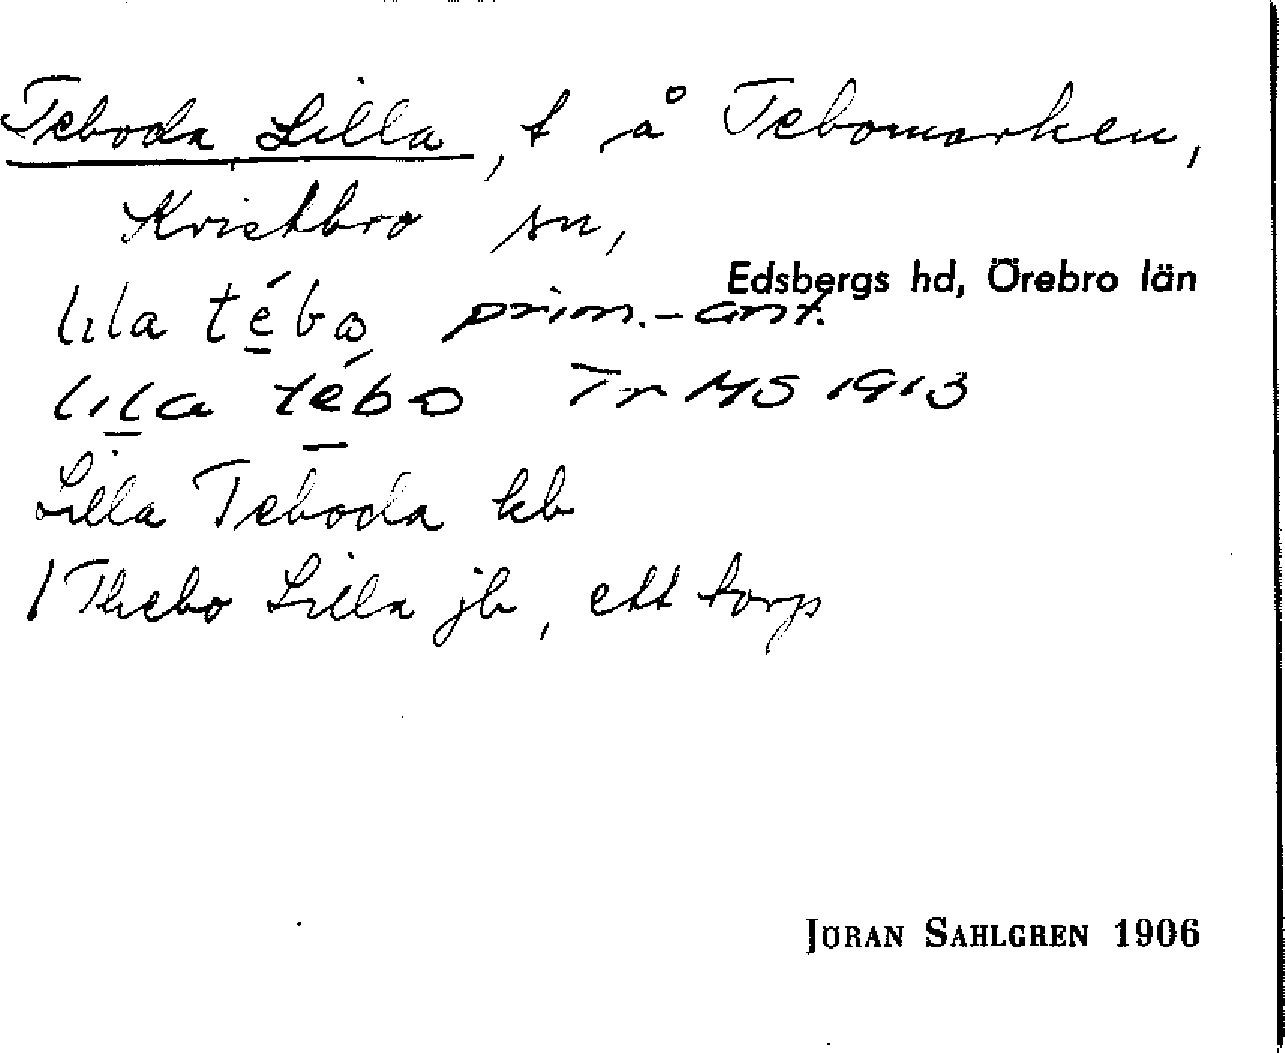 Teboda, Lilla, t å Tebomarken,
Kvistbro sn,
Edsbergs hd, Örebro län
lıla tébo̩ prim.-ant.
lıla tébo Tr MS 1913
Lilla Teboda kb
1 Thebo Lilla jb, ett torp
JÖRAN SAHLGREN 1906